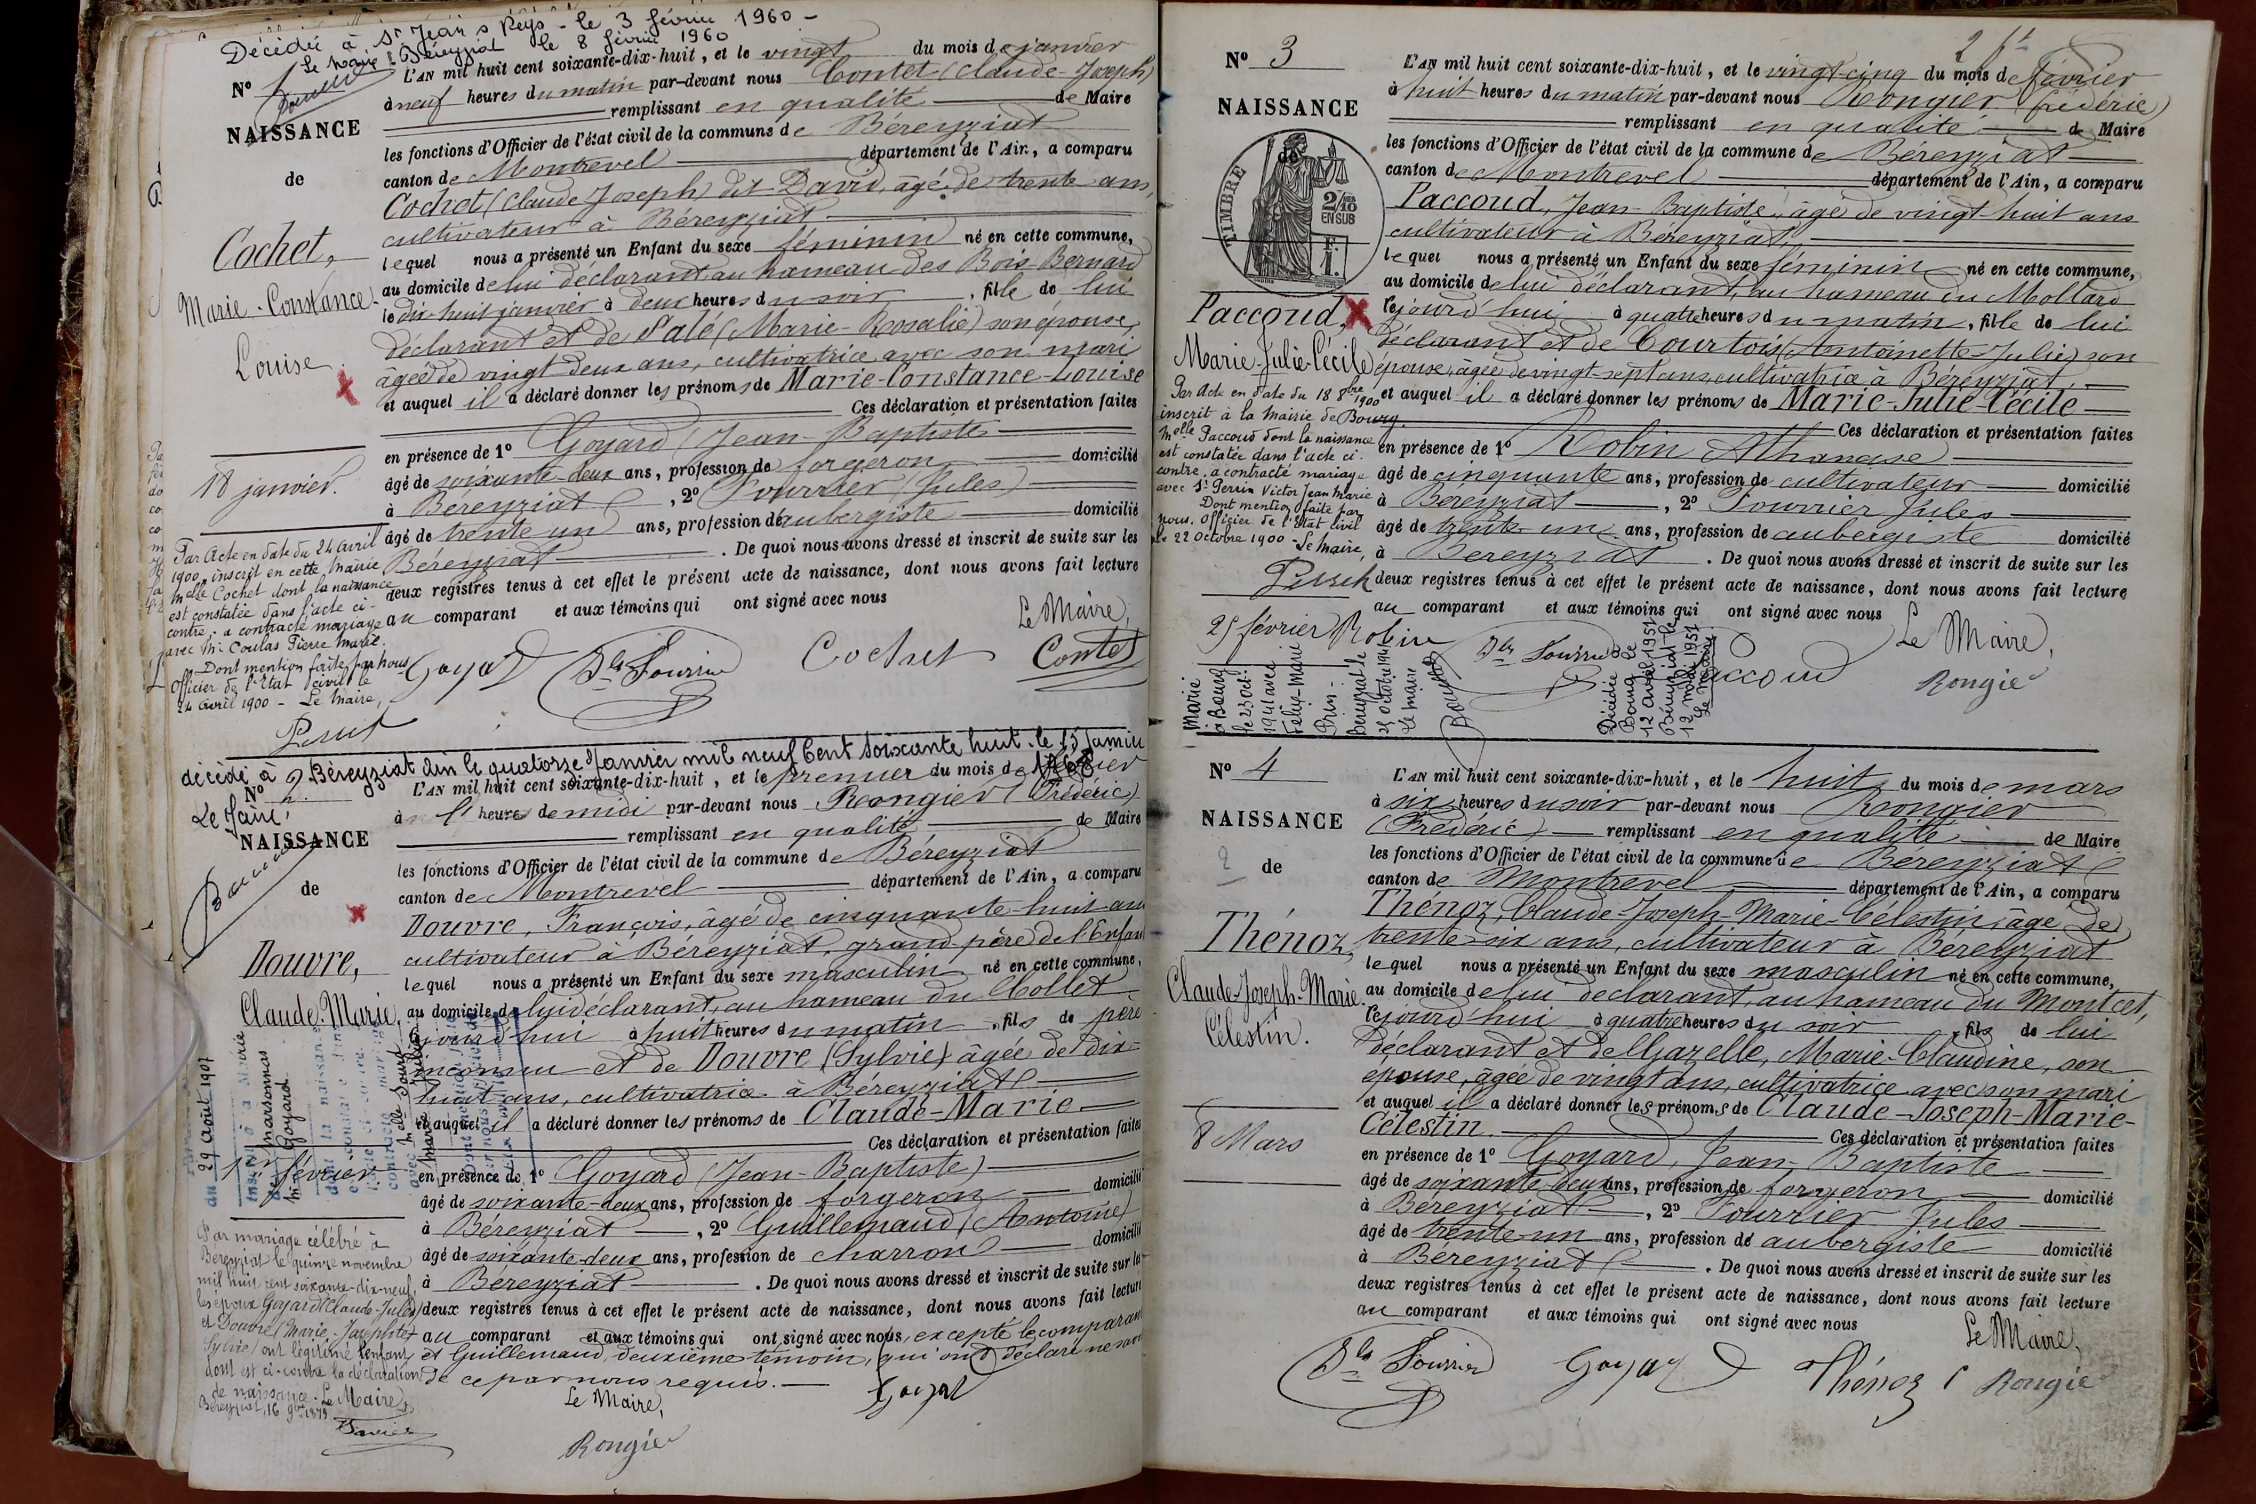 Décédée à St Jean s Reys - le 3 février 1960 -
Le Maire Béreyziat le 8 février 1960
N° 1
NAISSANCE
de
Cochet,
Marie-Constance
Louise
18 janvier.
Par Acte en date du 24 avril
1900, inscrit en cette Mairie
Melle Cochet dont la naissance
est constatée dans l'acte ci-
contre, a contracté mariage
avec Mr Coulas Pierre Marie.
Dont mention faite par nous
Officier de l'Etat civil le
24 avril 1900 - Le Maire,
L'AN mil huit cent soixante-dix-huit, et le vingt du mois de janvier
à neuf heures du matin par-devant nous Contet (Claude-Joseph)
remplissant en qualité de Maire
les fonctions d'Officier de l'état civil de la commune de Béreyziat
canton de Montrevel département de l'Ain, a comparu
Cochet (Claude Joseph) dit David, âgé de trente ans,
cultivateur à Béreyziat
lequel nous a présenté un Enfant du sexe féminin né en cette commune,
au domicile de lui déclarant, au hameau des Bois Bernard
le dix-huit janvier à deux heures du soir, fille de lui
déclarant et de Palé (Marie-Rosalie) son épouse,
âgée de vingt-deux ans, cultivatrice avec son mari
et auquel il a déclaré donner les prénoms de Marie-Constance-Louise
Ces déclaration et présentation faites
en présence de 1° Goyard (Jean-Baptiste)
âgé de soixante-deux ans, profession de forgeron domicilié
à Béreyziat, 2° Fourrier (Jules)
âgé de trente un ans, profession de aubergiste domicilié
Béreyziat. De quoi nous avons dressé et inscrit de suite sur les
deux registres tenus à cet effet le présent acte de naissance, dont nous avons fait lecture
au comparant et aux témoins qui ont signé avec nous
Le Maire,
Goyard Jles Fourrier Cochet Contet
décédé à Béreyziat Ain le quatorze janvier mil neuf Cent soixante huit. le 15 janvier
1968
Le Maire,
N° 2
NAISSANCE
de
Douvre,
Claude-Marie
1er février
au 29 août 1907
inscrit à Mairie
de marsonnas
Mr Goyard
dont la naissance
contracté mariage
avec Melle
Par mariage célébré à
Béreyziat le quinze novembre
mil huit cent soixante-dix-neuf,
les époux Goyard (Claude-Jules)
et Douvre (Marie-Josephte
Sylvie) ont légitimé l'enfant
dont est ci-contre la déclaration
de naissance. Le Maire,
Béreyziat, 16 9bre 1879
L'AN mil huit cent soixante-dix-huit, et le premier du mois de février
à l' heure de midi par-devant nous Rongier (Frédéric)
remplissant en qualité de Maire
les fonctions d'Officier de l'état civil de la commune de Béreyziat
canton de Montrevel département de l'Ain, a comparu
Douvre, François, âgé de cinquante-huit ans
cultivateur à Béreyziat, grand père de l'Enfant
lequel nous a présenté un Enfant du sexe masculin né en cette commune,
au domicile de lui déclarant, au hameau du Collet
aujourd'hui à huit heures du matin, fils de père
inconnu et de Douvre (Sylvie) âgée de dix-
huit ans, cultivatrice à Béreyziat
et auquel il a déclaré donner les prénoms de Claude-Marie
Ces déclaration et présentation faites
en présence de 1° Goyard (Jean-Baptiste)
âgé de soixante-deux ans, profession de forgeron domicilié
à Béreyziat, 2° Guillemaud (Antoine)
âgé de soixante-deux ans, profession de charron domicilié
à Béreyziat. De quoi nous avons dressé et inscrit de suite sur les
deux registres tenus à cet effet le présent acte de naissance, dont nous avons fait lecture
au comparant et aux témoins qui ont signé avec nous, excepté le comparant
et Guillemaud, deuxième témoin, qui ont déclaré ne savoir
de ce par nous requis.
Le Maire, Goyard
Rongier
2 ft
N° 3
NAISSANCE
de
TIMBRE
2/10 EN SUS
F. 1.
Paccoud,
Marie-Julie-Cécile
Par Acte en date du 18 8bre 1900
inscrit à la Mairie de Bourg.
Melle Paccoud dont la naissance
est constatée dans l'acte ci-
contre, a contracté mariage
avec Sr Perrin Victor Jean Marie
Dont mention faite par
nous. Officier de l'Etat civil
le 22 Octobre 1900 - Le Maire,
25 février
Marié
à Bourg
le 23 oct.
1941 avec
Felix-Marie
Prin -
Bereyziat le
25 Octobre 1941
Le Maire
L'AN mil huit cent soixante-dix-huit, et le vingt-cinq du mois de février
à huit heures du matin par-devant nous Rongier (Frédéric)
remplissant en qualité de Maire
les fonctions d'Officier de l'état civil de la commune de Béreyziat
canton de Montrevel département de l'Ain, a comparu
Paccoud, Jean-Baptiste, âgé de vingt-huit ans
cultivateur à Béreyziat,
lequel nous a présenté un Enfant du sexe féminin né en cette commune,
au domicile de lui déclarant, au hameau du Mollard
cejourd'hui à quatre heures du matin, fille de lui
déclarant et de Courtois (Antoinette-Julie) son
épouse, âgée de vingt-sept ans, cultivatrice à Béreyziat,
et auquel il a déclaré donner les prénoms de Marie-Julie-Cécile
Ces déclaration et présentation faites
en présence de 1° Robin Athanase
âgé de cinquante ans, profession de cultivateur domicilié
à Béreyziat, 2° Fourrier Jules
âgé de trente un ans, profession de aubergiste domicilié
à Béreyziat. De quoi nous avons dressé et inscrit de suite sur les
deux registres tenus à cet effet le présent acte de naissance, dont nous avons fait lecture
au comparant et aux témoins qui ont signé avec nous
Le Maire,
Robin Jles Fourrier Paccoud Rongier
Décédée à
Bourg le
12 avril 1951
Béreyziat le
12 mai 1951
Le Maire
N° 4
NAISSANCE
2
de
Thénoz,
Claude-Joseph-Marie
Célestin.
8 Mars
L'AN mil huit cent soixante-dix-huit, et le huit du mois de mars
à six heures du soir par-devant nous Rongier
(Frédéric) remplissant en qualité de Maire
les fonctions d'Officier de l'état civil de la commune de Béreyziat
canton de Montrevel département de l'Ain, a comparu
Thénoz, Claude-Joseph-Marie-Célestin, âgé de
trente-six ans, cultivateur à Béreyziat
lequel nous a présenté un Enfant du sexe masculin né en cette commune,
au domicile de lui déclarant, au hameau du Montcet,
cejourd'hui à quatre heures du soir, fils de lui
déclarant et de Gazelle, Marie-Claudine, son
épouse, âgée de vingt ans, cultivatrice avec son mari
et auquel il a déclaré donner les prénoms de Claude-Joseph-Marie-
Célestin. Ces déclaration et présentation faites
en présence de 1° Goyard, Jean-Baptiste
âgé de soixante-deux ans, profession de forgeron domicilié
à Béreyziat, 2° Fourrier Jules
âgé de trente-un ans, profession de aubergiste domicilié
à Béreyziat. De quoi nous avons dressé et inscrit de suite sur les
deux registres tenus à cet effet le présent acte de naissance, dont nous avons fait lecture
au comparant et aux témoins qui ont signé avec nous
Le Maire,
Jles Fourrier Goyard Thénoz Rongier